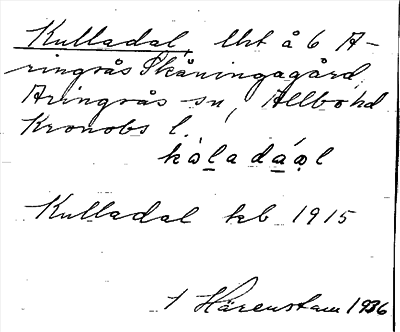 Kulladal, lht å 6 A-
ringsås Skåningagård,
Aringsås sn, Allbo hd
Kronobs l.
Kulladal kb 1915
Härenstam 1936